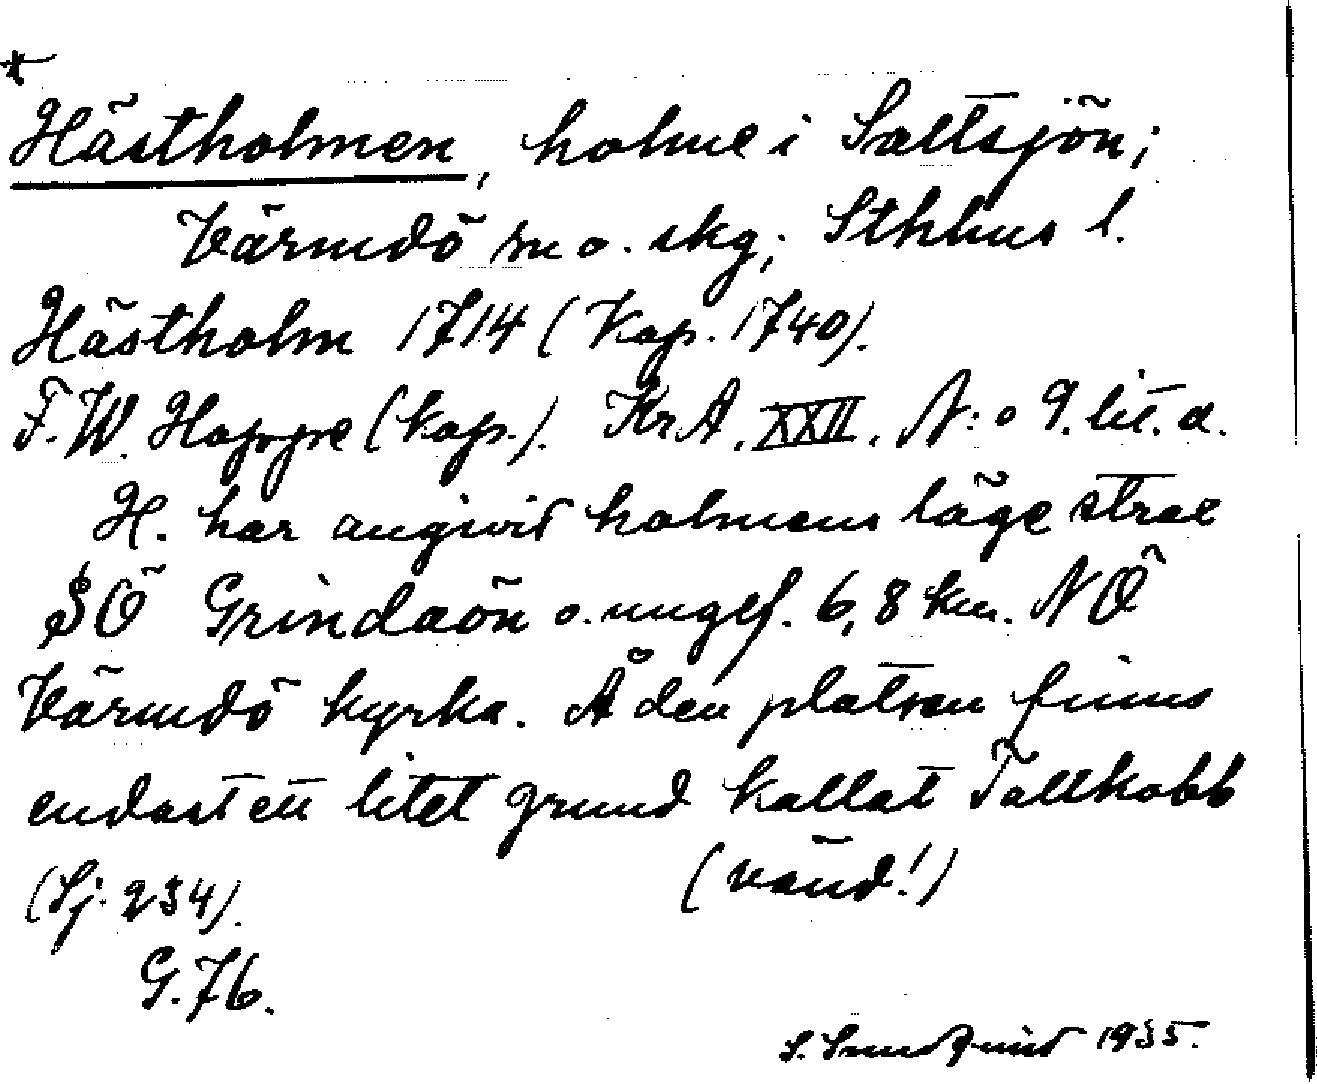 *
Hästholmen, holme i Saltsjön;
Värmdö sn o. skg; Sthlms l.
Hästholm 1714 (Kop. 1740).
F. W. Hoppe (kop.). KrA. XXII. N:o 9. lit. a.
H. har angivit holmens läge strax
SÖ Grindaön o. ungef. 6,8 km. NÖ
Värmdö kyrka. Å den platsen finns
endast ett litet grund kallat Tallkobb
(Sj. 234). (vänd!)
G. 76.
S. 1935.